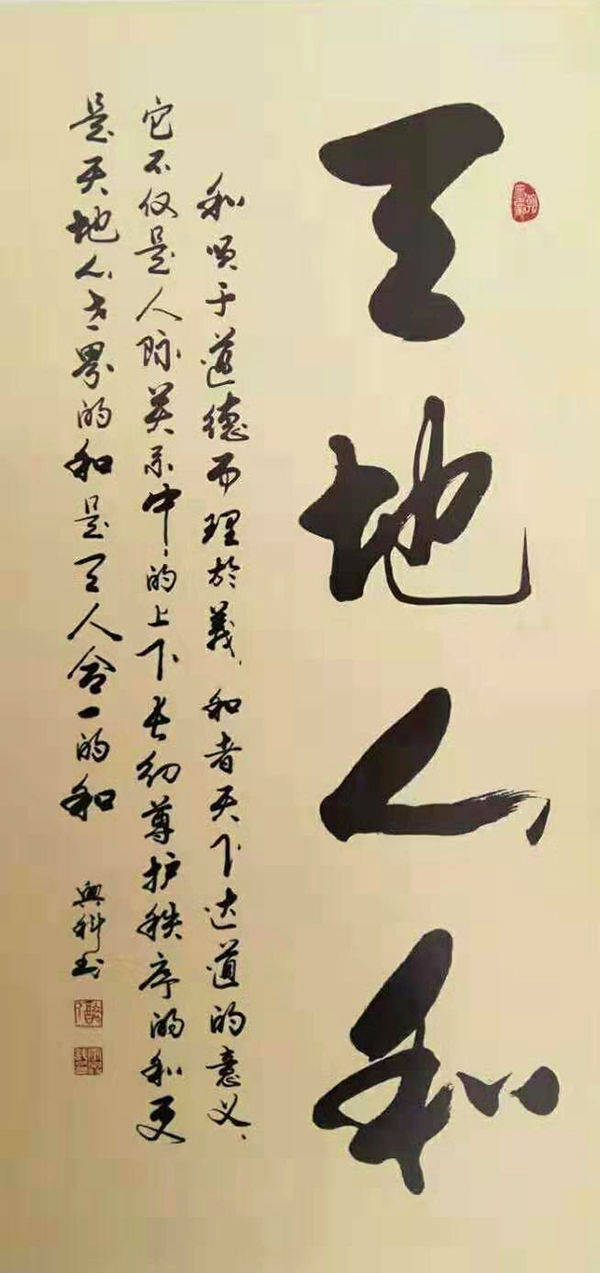 天地人和
和顺于道德而理於義，和者天下达道的意义、
它不仅是人际关系中的上下长幼尊护秩序的和更
是天地人世界的和是天人合一的和
興科书